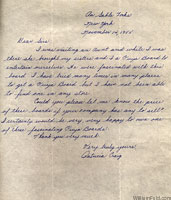 Au Sable Forks
New York
November 14, 1944
Dear Sir:
I was visiting an Aunt and while I was
there she bought my sisters and I a Ouija Board to
entertain ourselves. We were fascinated with this
board. I have tried many times in many places
to get a Ouija Board but I have not been able
to find one in any store.
Could you please let me know the price
of these boards if your company has any to sell?
I certainly would be very very happy to own one
of these fascinating Ouija Boards.
Thank you very much.
Very truly yours,
Patricia Craig
WilliamFuld.com